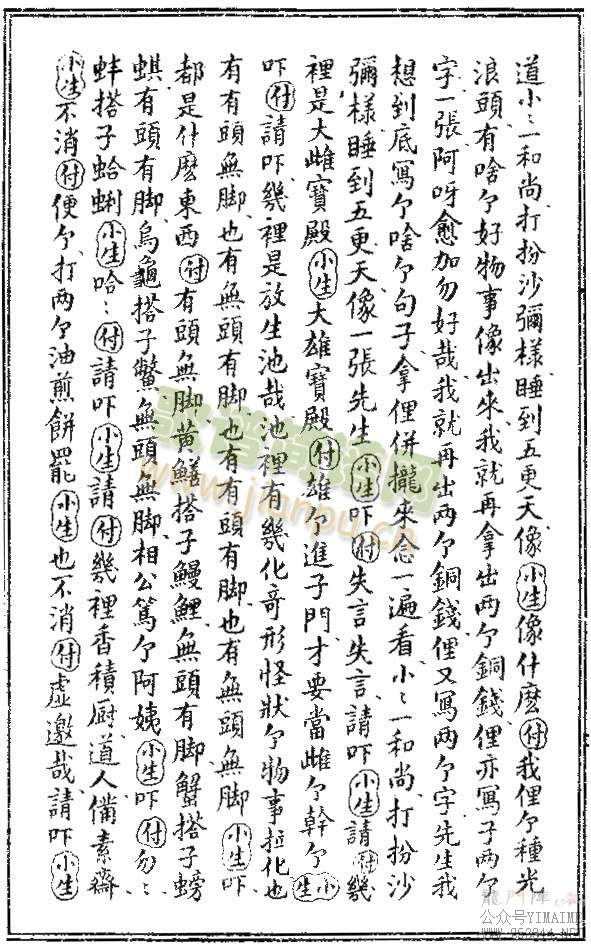 道小〻一和尚打扮沙彌樣睡到五更天像小生像什麽付我俚个種光
浪頭有啥个好物事像出來我就再拿出两个銅錢俚亦寫子两个
字一張阿呀愈加勿好哉我就再出两个銅錢俚又寫两个字先生我
想到底寫个啥个句子拿俚併攏來念一遍看小〻一和尚打扮沙
彌樣睡到五更天像一張先生小生吓付失言失言請吓小生請付幾
裡是大雌寶殿小生大雄寶殿付雄个進子門才要當雌个幹个小生
吓付請吓幾裡是放生池哉池裡有幾化奇形怪狀个物事拉化也
有有頭無脚也有無頭有脚也有有頭有脚也有無頭無脚小生吓
都是什麽東西付有頭無脚黄鱔搭子鰻鯉無頭有脚蟹搭子螃
蜞有頭有脚烏龜搭子鱉無頭無脚相公篤个阿姨小生吓付勿〻
蚌搭子蛤蜊小生哈〻付請吓小生請付幾裡香積厨道人備素齋
小生不消付便个打两个油煎餅罷小生也不消付虚邀哉請吓小生
歌譜簡譜网
www.jianpu.cn
龍門陣
公众号YIMAIMI
WWW.252844.NET